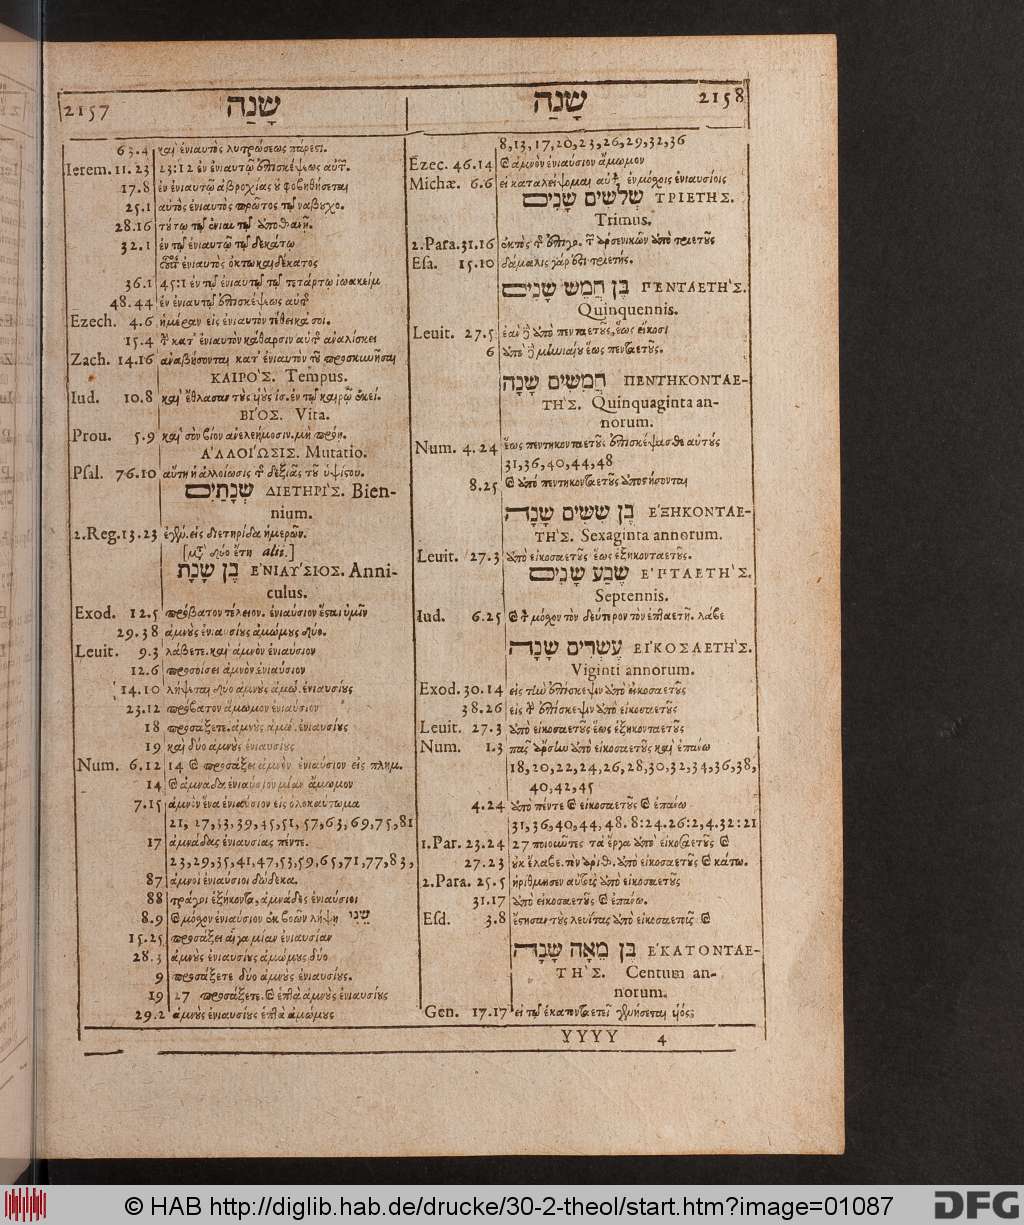 2157 שָׁנָה
63.4 καὶ ἐνιαυτὸς λυτρώσεως πάρεστι.
Ierem. 11.23 23:12 ἐν ἐνιαυτῷ ἐπισκέψεως αὐτ̃.
17.8 ἐν ἐνιαυτῷ ἀβροχίας οὐ φοβηθήσεται
25.1 αὐτὸς ἐνιαυτὸς πρῶτος τῷ ναβυχο.
28.16
32.1 ἐν τῷ ἐνιαυτῷ τῷ δεκάτῳ
ἐνιαυτὸς ὀκτωκαιδέκατος
36.1 45:1 ἐν τῷ ἐνιαυτῷ τῷ τετάρτῳ ἰωακείμ
48.44 ἐν ἐνιαυτῷ ἐπισκέψεως αὐτῶν
Ezech. 4.6 ἡμέραν εἰς ἐνιαυτὸν τέθεικά σοι.
15.4 κατ' ἐνιαυτὸν κάθαρσιν αὐτῆς ἀναλίσκει
Zach. 14.16 ἀναβήσονται κατ' ἐνιαυτὸν τοῦ προσκυνῆσαι
ΚΑΙΡΟ'Σ. Tempus.
Iud. 10.8 καὶ ἔθλασαν τοὺς υἱοὺς ἰσ. ἐν τῷ καιρῷ ἐκεί.
ΒΙ'ΟΣ. Vita.
Prou. 5.9 καὶ σὸν βίον ἀνελεήμοσιν.
Α'ΛΛΟΙ'ΩΣΙΣ. Mutatio.
Psal. 76.10 αὕτη ἡ ἀλλοίωσις τῆς δεξιᾶς τοῦ ὑψίστου.
שְׁנָתַיִם ΔΙΕΤΗΡΙ'Σ. Bien-
nium.
2.Reg. 13.23 ἐγένε. εἰς διετηρίδα ἡμερῶν.
[μετ̀ δύο ἔτη aliò.]
בֶּן שָׁנָת Ε'ΝΙΑΥ'ΣΙΟΣ. Anni-
culus.
Exod. 12.5 πρόβατον τέλειον. ἐνιαύσιον ἔσται ὑμῖν
29.38 ἀμνοὺς ἐνιαυσίους ἀμώμους δύο.
Leuit. 9.3 λάβετε. καὶ ἀμνὸν ἐνιαύσιον
12.6 προσοίσει ἀμνὸν ἐνιαύσιον
14.10 λήψεται δύο ἀμνοὺς ἀμώ. ἐνιαυσίους
23.12 πρόβατον ἄμωμον ἐνιαύσιον
18 προσάξετε. ἀμνοὺς ἀμώ. ἐνιαυσίους
19 καὶ δύο ἀμνοὺς ἐνιαυσίους
Num. 6.12 14 καὶ προσάξει ἀμνὸν ἐνιαύσιον εἰς πλημ.
14 καὶ ἀμνάδα ἐνιαυσίαν μίαν ἄμωμον
7.15 ἀμνὸν ἕνα ἐνιαύσιον εἰς ὁλοκαύτωμα
21, 27,33,39,45,51, 57,63,69,75,81
17 ἀμνάδας ἐνιαυσίας πέντε.
23,29,35,41,47,53,59,65,71,77,83,
87 ἀμνοὶ ἐνιαύσιοι δώδεκα.
88 τράγοι ἑξήκοντα, ἀμνάδες ἐνιαύσιοι
8.9 καὶ μόσχον ἐνιαύσιον ἐκ βοῶν λήψῃ שֵׁנִי
15.25 προσάξει αἶγα μίαν ἐνιαυσίαν
28.3 ἀμνοὺς ἐνιαυσίους ἀμώμους δύο
9 προσάξετε δύο ἀμνοὺς ἐνιαυσίους.
19 27 προσάξετε. καὶ ἑπτὰ ἀμνοὺς ἐνιαυσίους
29.2 ἀμνοὺς ἐνιαυσίους ἑπτὰ ἀμώμους
שָׁנָה 2158
8,13,17,20,23,26,29,32,36
Ezec. 46.14 καὶ ἀμνὸν ἐνιαύσιον ἄμωμον
Michæ. 6.6 εἰ καταλείψομαι αὐτ̀ ἐν μόσχοις ἐνιαυσίοις
שְׁלֹשִׁים שָׁנִים ΤΡΙΕΤΗΣ.
Trimus.
2.Para. 31.16 ἐκτὸς τῆς ἐπιγο. τῶν ἀρσενικῶν ἀπὸ τριετοῦς
Esa. 15.10 δάμαλις γάρ ἐστι τριετής.
בֶּן חֲמֵשׁ שָׁנִים ΠΕΝΤΑΕΤΗ'Σ.
Quinquennis.
Leuit. 27.5 ἐὰν δὲ ἀπὸ πενταετοῦς, ἕως εἴκοσι
6 ἀπὸ δὲ μηνιαίου ἕως πενταετοῦς.
חֲמִשִּׁים שָׁנָה ΠΕΝΤΗΚΟΝΤΑΕ-
ΤΗ'Σ. Quinquaginta an-
norum.
Num. 4.24 ἕως πεντηκονταετοῦς ἐπισκέψασθε αὐτούς
31,36,40,44,48
8.25 καὶ ἀπὸ πεντηκονταετοῦς ἀποστήσονται
בֶּן שִׁשִּׁים שָׁנָה Ε'ΞΗΚΟΝΤΑΕ-
ΤΗ'Σ. Sexaginta annorum.
Leuit. 27.3 ἀπὸ εἰκοσαετοῦς ἕως ἑξηκονταετοῦς.
שֶׁבַע שָׁנִים Ε'ΠΤΑΕΤΗ'Σ.
Septennis.
Iud. 6.25 καὶ μόσχον τὸν δεύτερον τὸν ἑπταετῆ. λάβε
עֶשְׂרִים שָׁנָה ΕΙ'ΚΟΣΑΕΤΗ'Σ.
Viginti annorum.
Exod. 30.14 εἰς τὴν ἐπίσκεψιν ἀπὸ εἰκοσαετοῦς
38.26 εἰς τ̀ ἐπίσκεψιν ἀπὸ εἰκοσαετοῦς
Leuit. 27.3 ἀπὸ εἰκοσαετοῦς ἕως ἑξηκονταετοῦς
Num. 1.3 πᾶς ἄρσην ἀπὸ εἰκοσαετοῦς καὶ ἐπάνω
18,20,22,24,26,28,30,32,34,36,38,
40,42,45
4.24 ἀπὸ πέντε καὶ εἰκοσαετοῦς καὶ ἐπάνω
31,36,40,44,48. 8:24.26:2,4.32:21
1.Par. 23.24 27 ποιοῦντες τὰ ἔργα ἀπὸ εἰκοσαετοῦς καὶ
27.23 οὐκ ἔλαβε. τὸν ἀριθ. ἀπὸ εἰκοσαετοῦς καὶ κάτω.
2.Para. 25.5 ἠρίθμησεν αὐτοὺς ἀπὸ εἰκοσαετοῦς
31.17 ἀπὸ εἰκοσαετοῦς καὶ ἐπάνω.
Esd. 3.8 ἔστησαν τοὺς λευίτας ἀπὸ εἰκοσαετοῦς καὶ
בֶּן מֵאָה שָׁנָה Ε'ΚΑΤΟΝΤΑΕ-
ΤΗ'Σ. Centum an-
norum.
Gen. 17.17 εἰ τῷ ἑκατονταετεῖ γενήσεται υἱός;
YYYY 4
© HAB http://diglib.hab.de/drucke/30-2-theol/start.htm?image=01087 DFG